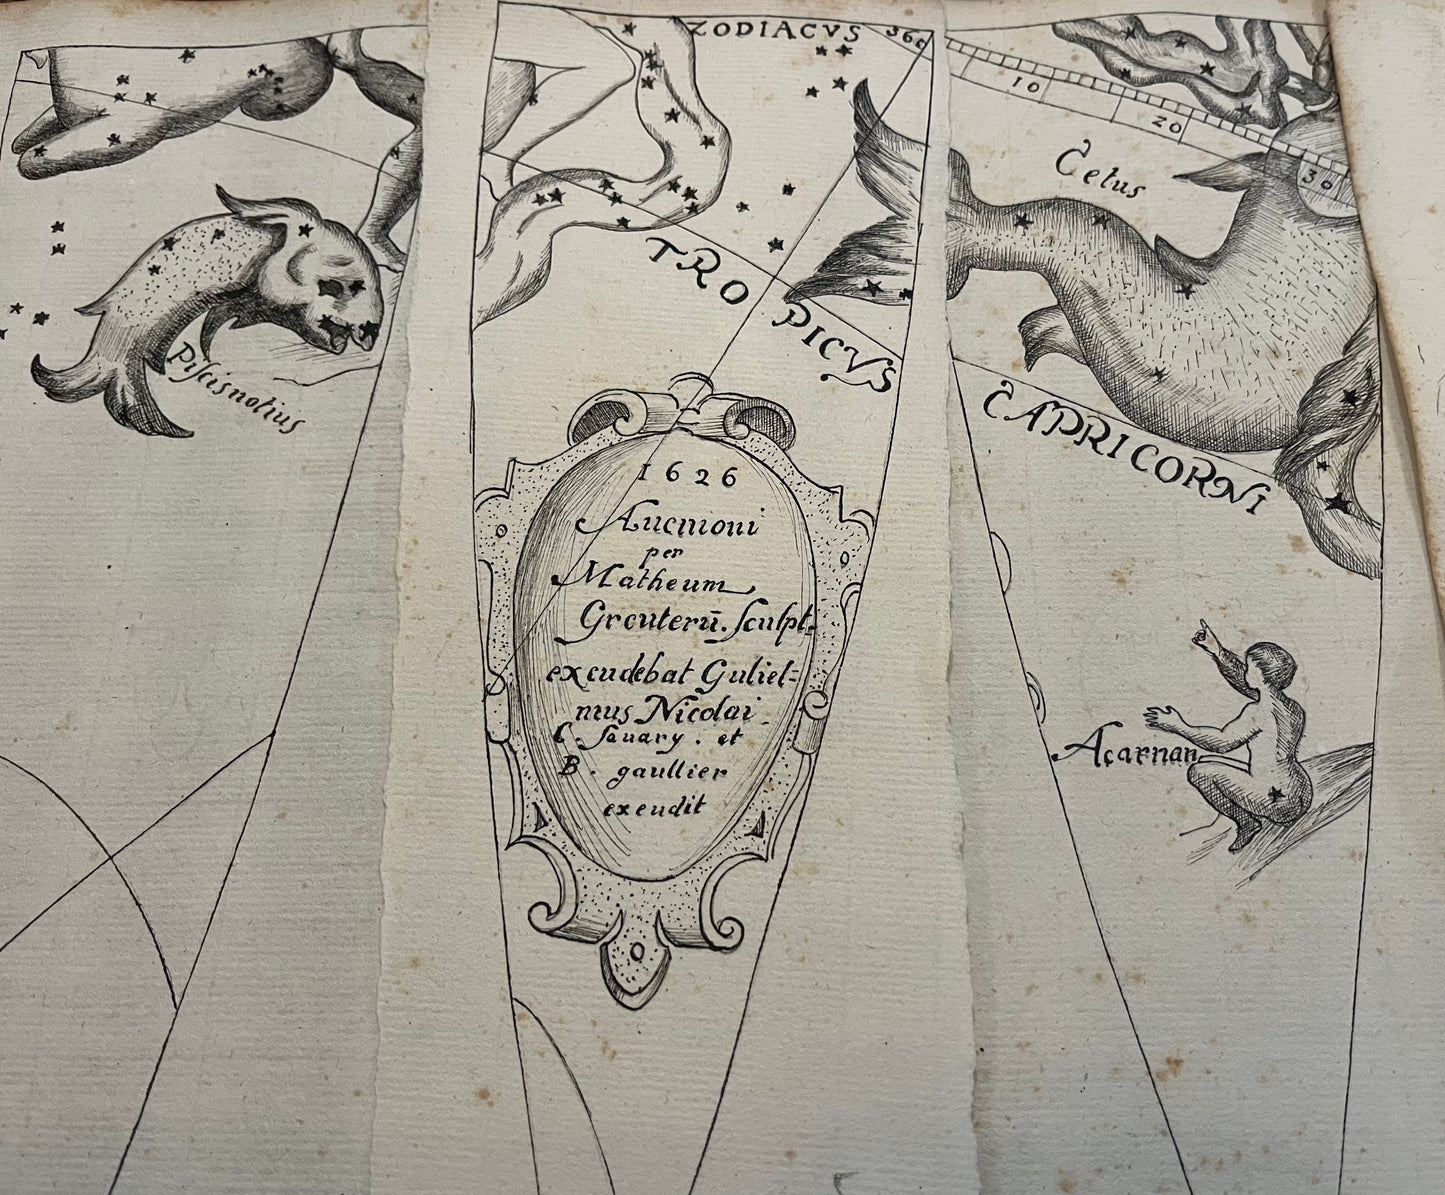 ZODIACVS 360
10
20
30
Cetus
TROPICVS
CAPRICORNI
Piſcisnotius
1626
Auenioni
per
Matheum
Greuterū. ſculpt.
excudebat Guliel-
mus Nicolai
C. ſauary. et
B. gaullier
exeudit
Acarnan